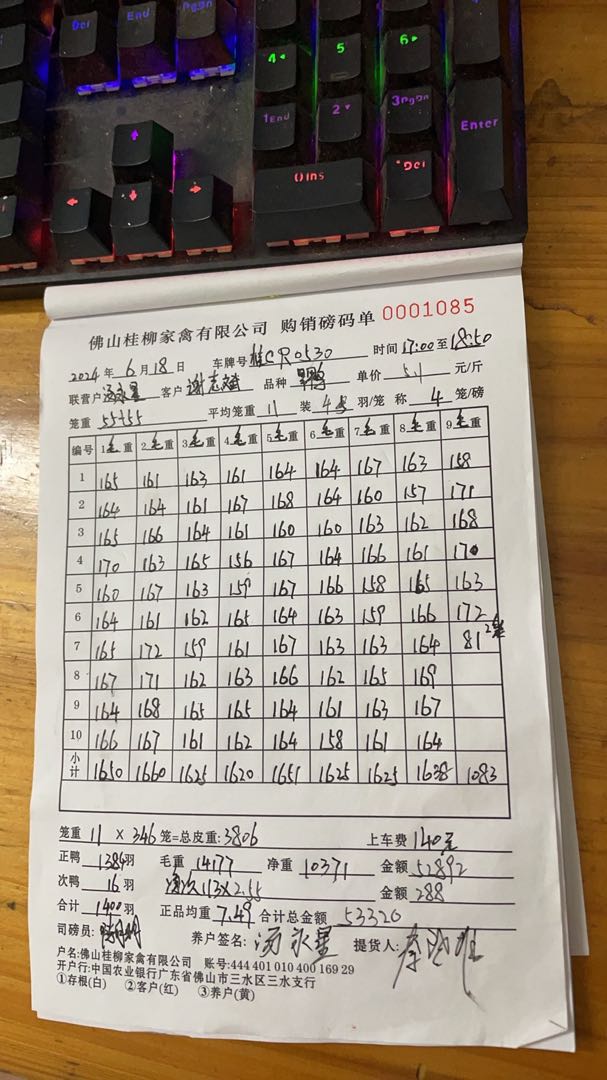 Del End PgDn
4 5 6
1 End 2 3 PgDn Enter
0 Ins Del
佛山桂柳家禽有限公司 购销磅码单 0001085
2024年6月18日 车牌号 桂CR0530 时间 17:00至18:50
联营户 汤永星 客户 谢志斌 品种 单价 5.1 元/斤
笼重 55+55 平均笼重 11 装 羽/笼 称 4 笼/磅
编号 1毛重 2毛重 3毛重 4毛重 5毛重 6毛重 7毛重 8毛重 9毛重
1 165 161 163 161 164 164 167 163 158
2 164 164 161 167 168 164 160 157 171
3 165 166 164 161 160 160 163 162 168
4 170 163 165 156 167 164 166 161 170
5 160 167 163 159 167 166 158 165 163
6 164 161 162 165 164 163 159 166 172
7 165 172 159 161 167 163 163 164 81 2笼
8 167 171 162 163 166 162 165 169
9 164 168 165 165 164 161 163 167
10 166 167 161 162 164 158 161 164
小计 1650 1660 1625 1620 1651 1625 1625 1638 1083
笼重 11 × 346 笼=总皮重:3806 上车费 140元
正鸭 1384羽 毛重 14177 净重 10371 金额 52892
次鸭 16羽 113×2.55 金额 288
合计 1400羽 正品均重 7.49 合计总金额 53320
司磅员: 养户签名: 汤永星 提货人:
户名:佛山桂柳家禽有限公司 账号:444 401 010 400 169 29
开户行:中国农业银行广东省佛山市三水区三水支行
①存根(白) ②客户(红) ③养户(黄)